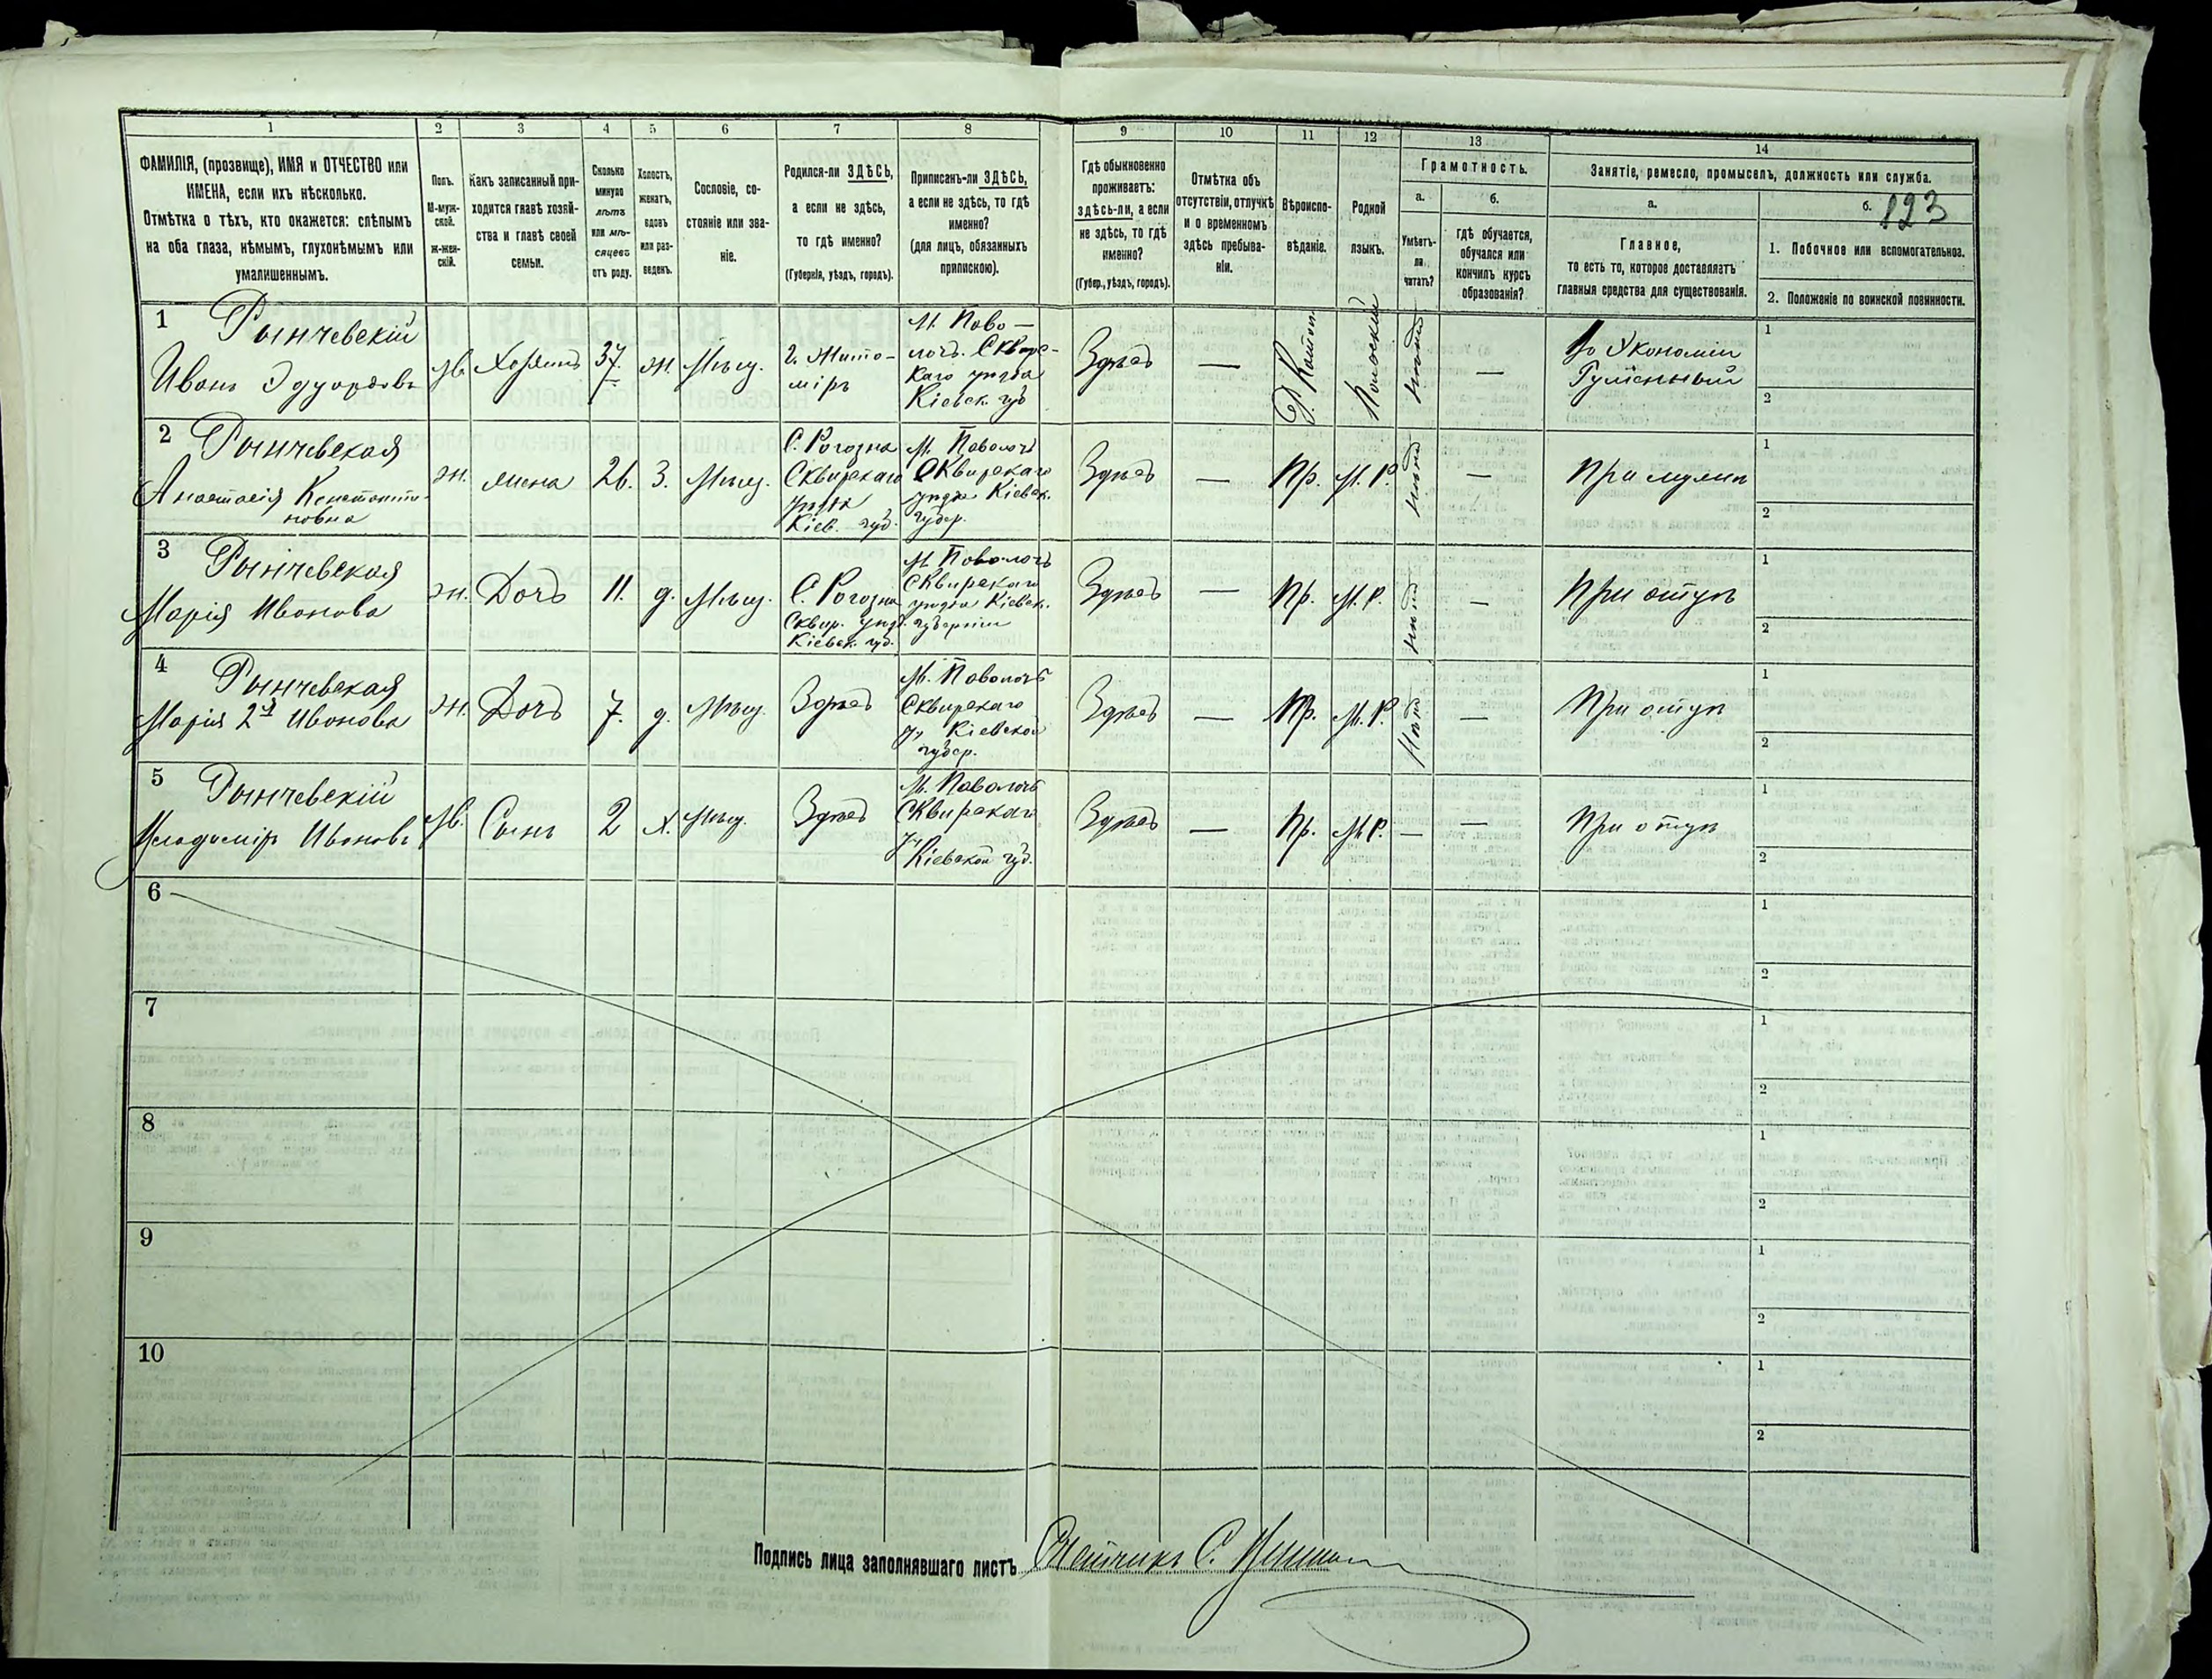 1
2
3
4
5
6
7
8
9
10
11
12
13
14
ФАМИЛІЯ, (прозвище), ИМЯ и ОТЧЕСТВО или
ИМЕНА, если ихъ нѣсколько.
Отмѣтка о тѣхъ, кто окажется: слѣпымъ
на оба глаза, нѣмымъ, глухонѣмымъ или
умалишеннымъ.
Полъ.
М-муж-
ской.
Ж-жен-
скій.
Какъ записанный при-
ходится главѣ хозяй-
ства и главѣ своей
семьи.
Сколько
минуло
лѣтъ
или мѣ-
сяцевъ
отъ роду.
Холостъ,
женатъ,
вдовъ
или раз-
веденъ.
Сословіе, со-
стояніе или зва-
ніе.
Родился-ли ЗДѢСЬ,
а если не здѣсь,
то гдѣ именно?
(Губернія, уѣздъ, городъ).
Приписанъ-ли ЗДѢСЬ,
а если не здѣсь, то гдѣ
именно?
(для лицъ, обязанныхъ
припискою).
Гдѣ обыкновенно
проживаетъ:
здѣсь-ли, а если
не здѣсь, то гдѣ
именно?
(Губер., уѣздъ, городъ).
Отмѣтка объ
отсутствіи, отлучкѣ
и о временномъ
здѣсь пребыва-
ніи.
Вѣроиспо-
вѣданіе.
Родной
языкъ.
Грамотность.
а.
Умѣетъ-
ли
читать?
б.
гдѣ обучается,
обучался или
кончилъ курсъ
образованія?
Занятіе, ремесло, промыселъ, должность или служба.
а.
Главное,
то есть то, которое доставляетъ
главныя средства для существованія.
б. 123
1. Побочное или вспомогательное.
2. Положеніе по воинской повинности.
1 Рынчевскій
Иванъ Эдуардовъ
М.
Хозяинъ
37.
Ж.
Мѣщ.
г. Жито-
міръ
М. Паво-
лочь. Сквирс-
каго уѣзда
Кіевск. губ
Здѣсь
—
Р. Катол.
Польскій
нѣтъ
—
Въ Экономіи
Гуменный
1
2
2 Рынчевская
Анастасія Константи-
новна
Ж.
жена
26.
З.
Мѣщ.
С. Рогозна
Сквирскаго
уѣзда
Кіев. губ.
М. Паволочь
Сквирскаго
уѣзда Кіевск.
губер.
Здѣсь
—
Пр.
М. Р.
нѣтъ
—
При мужѣ
1
2
3 Рынчевская
Марія Иванова
Ж.
Дочь
11.
д.
Мѣщ.
С. Рогозна
Сквир. уѣзд.
Кіевск. губ.
М. Паволочь
Сквирскаго
уѣзда Кіевск.
губерніи
Здѣсь
—
Пр.
М. Р.
нѣтъ
—
При отцѣ
1
2
4 Рынчевская
Марія 2я Иванова
Ж.
Дочь
7.
д.
Мѣщ.
Здѣсь
М. Паволочь
Сквирскаго
у, Кіевской
губер.
Здѣсь
—
Пр.
М. Р.
Нѣтъ
—
При отцѣ
1
2
5 Рынчевскій
Владиміръ Ивановъ
М.
Сынъ
2
х.
Мѣщ.
Здѣсь
М. Паволочь
Сквирскаго
у,
Кіевской губ.
Здѣсь
—
Пр.
М. Р.
—
—
При отцѣ
1
2
6
1
2
7
1
2
8
1
2
9
1
2
10
1
2
Подпись лица заполнявшаго листъ Счетчикъ С.